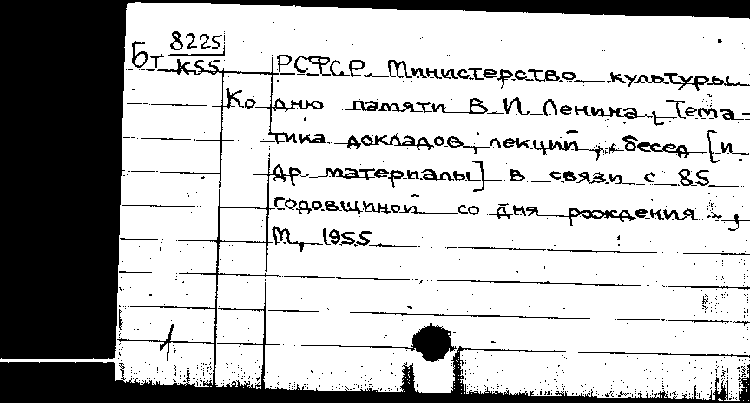 Бт 8225
К55 РСФСР. Министерство культуры
Ко дню памяти В.И. Ленина, Тема-
тика докладов, лекций, бесед [и
др. материалы] в связи с 85
годовщиной со дня рождения ,
М, 1955
1